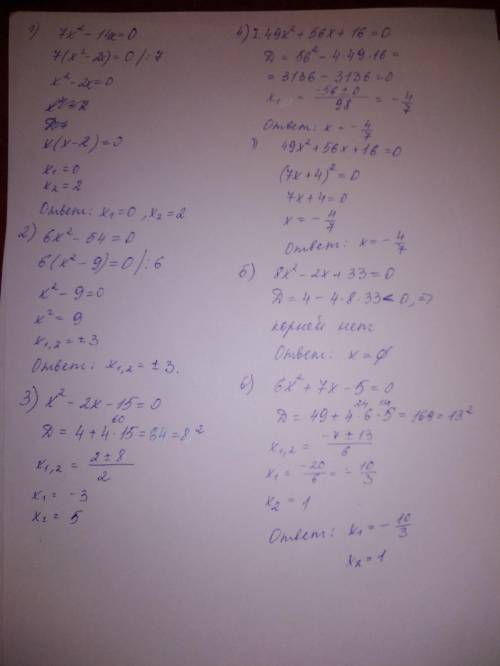 1) 7x² - 14x = 0
7(x² - 2x) = 0 /:7
x² - 2x = 0
x(x - 2) = 0
x₁ = 0
x₂ = 2
Ответ: x₁ = 0, x₂ = 2
2) 6x² - 54 = 0
6(x² - 9) = 0 /:6
x² - 9 = 0
x² = 9
x₁,₂ = ± 3
Ответ: x₁,₂ = ± 3.
3) x² - 2x - 15 = 0
60
D = 4 + 4·15 = 64 = 8²
x₁,₂ = (2 ± 8)/2
x₁ = -3
x₂ = 5
4) I. 49x² + 56x + 16 = 0
D = 56² - 4·49·16 =
= 3136 - 3136 = 0
x₁ = (-56 ± 0)/98 = -4/7
Ответ: x = -4/7
49x² + 56x + 16 = 0
(7x + 4)² = 0
7x + 4 = 0
x = -4/7
Ответ: x = -4/7
5) 8x² - 2x + 33 = 0
D = 4 - 4·8·33 < 0, ⇒
корней нет
Ответ: x = ∅
6) 6x² + 7x - 5 = 0
24 120
D = 49 + 4·6·5 = 169 = 13²
x₁,₂ = (-7 ± 13)/6
x₁ = -20/6 = -10/3
x₂ = 1
Ответ: x₁ = -10/3
x₂ = 1